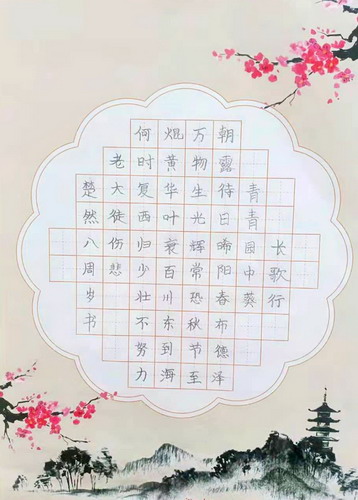 长歌行
青青园中葵
朝露待日晞阳春布德泽
万物生光辉常恐秋节至
焜黄华叶衰百川东到海
何时复西归少壮不努力
老大徒伤悲
楚然八周岁书